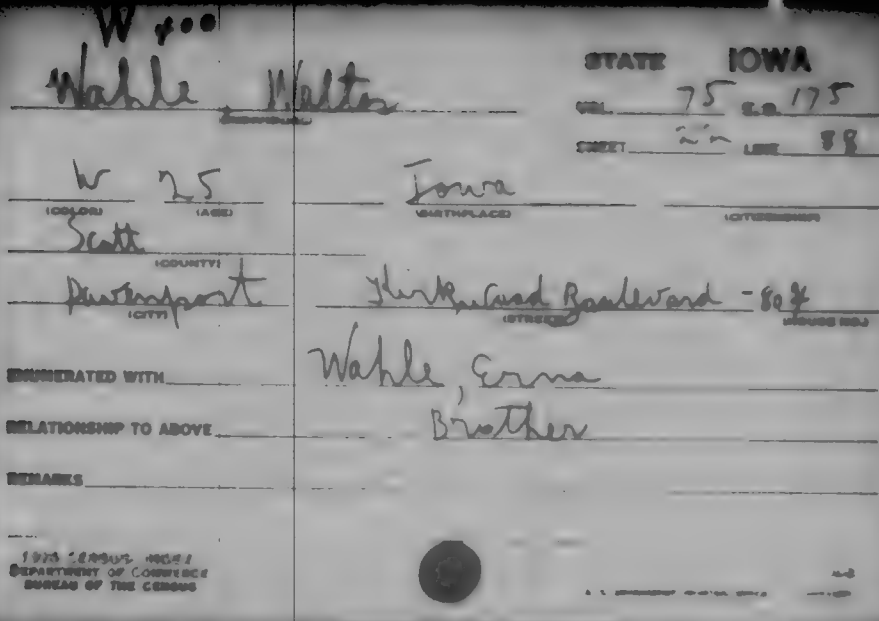 W 400
Wahle Walter STATE IOWA
(INDIVIDUAL) VOL. 75 E.D. 175
SHEET LINE 88
W 25 Iowa
(COLOR) (AGE) (BIRTHPLACE) (CITIZENSHIP)
Scott
(COUNTY)
Davenport Kirkwood Boulevard -
(CITY) (STREET) (HOUSE NO.)
ENUMERATED WITH Wahle, Erma
RELATIONSHIP TO ABOVE Brother
REMARKS
CENSUS INDEX
DEPARTMENT OF COMMERCE
BUREAU OF THE CENSUS